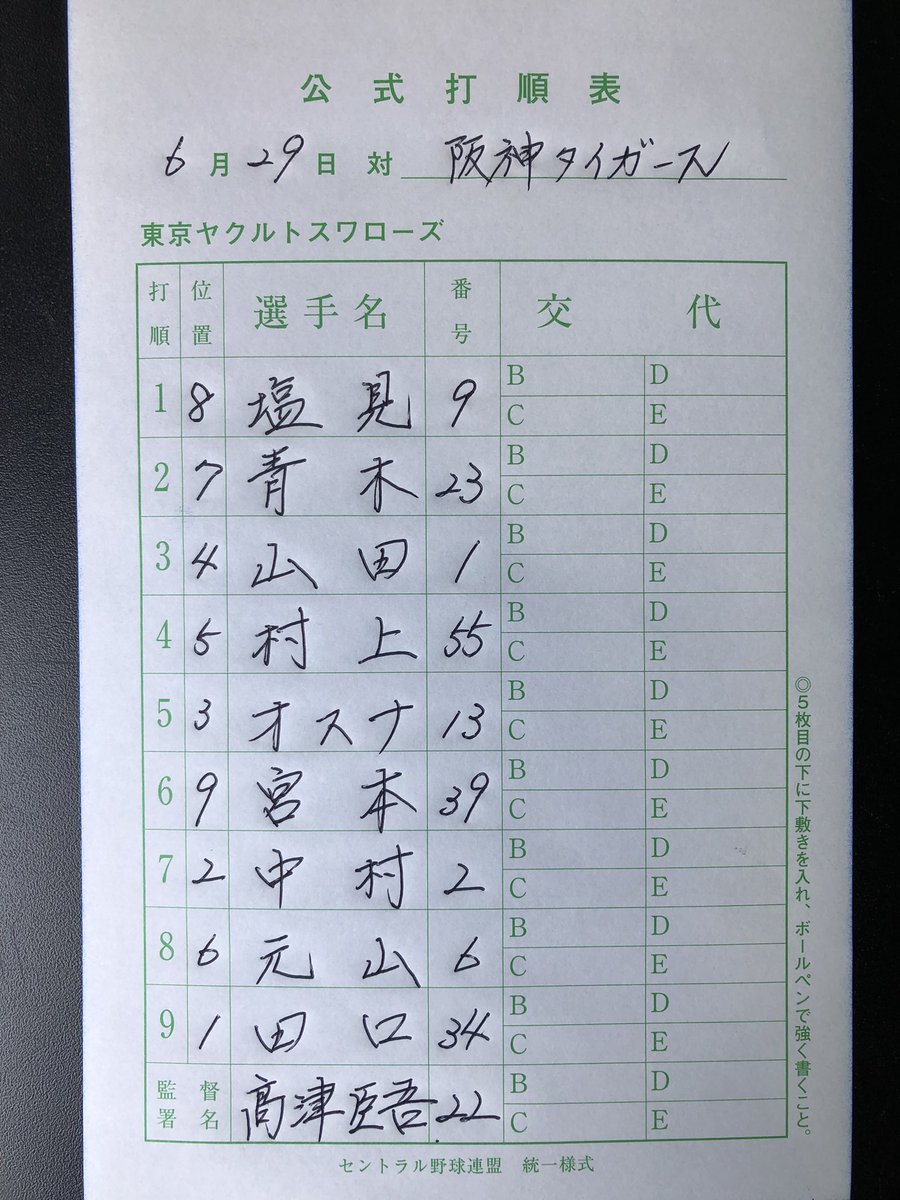 公式打順表
6月29日 対 阪神タイガース
東京ヤクルトスワローズ
打順 位置 選手名 番号 交代
1 8 塩見 9 B D C E
2 7 青木 23 B D C E
3 4 山田 1 B D C E
4 5 村上 55 B D C E
5 3 オスナ 13 B D C E
6 9 宮本 39 B D C E
7 2 中村 2 B D C E
8 6 元山 6 B D C E
9 1 田口 34 B D C E
監督署名 高津臣吾 22 B D C E
◎5枚目の下に下敷きを入れ、ボールペンで強く書くこと。
セントラル野球連盟 統一様式